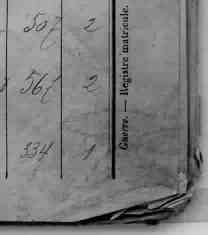 507 2
567 2
334 1
Guerre. — Registre matricule.